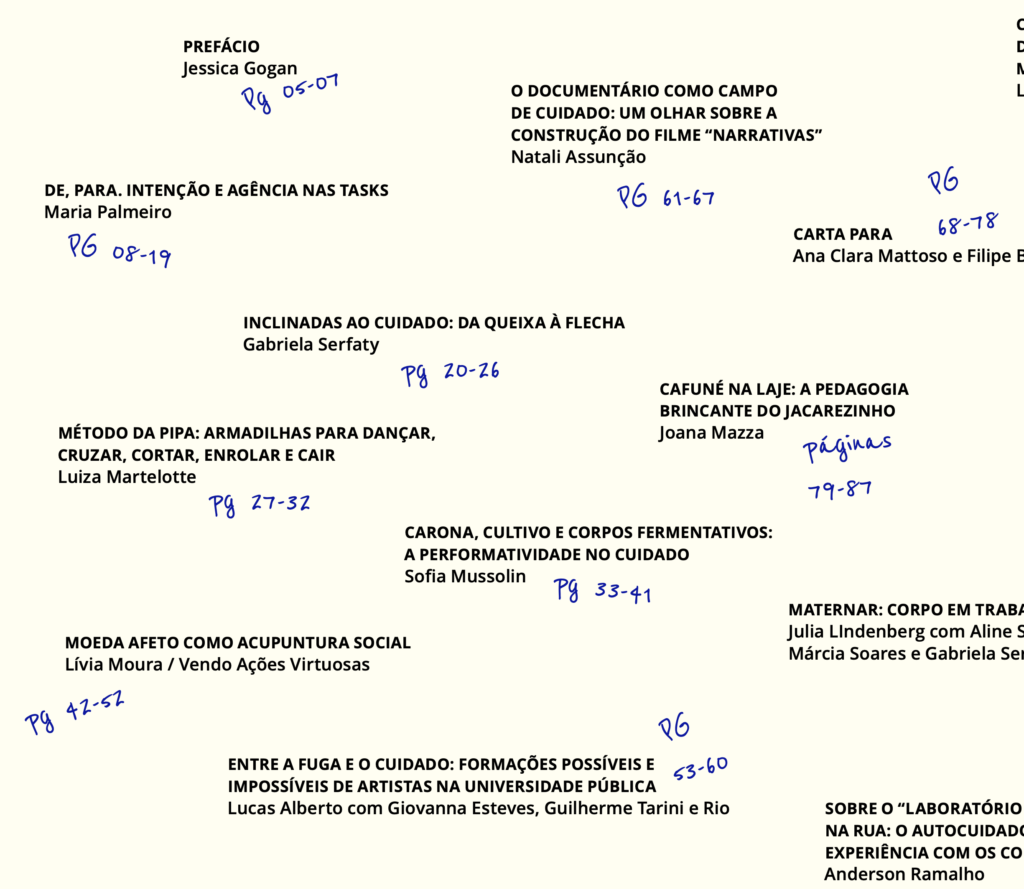 PREFÁCIO
Jessica Gogan
Pg 05-07
DE, PARA. INTENÇÃO E AGÊNCIA NAS TASKS
Maria Palmeiro
PG 08-19
INCLINADAS AO CUIDADO: DA QUEIXA À FLECHA
Gabriela Serfaty
Pg 20-26
MÉTODO DA PIPA: ARMADILHAS PARA DANÇAR,
CRUZAR, CORTAR, ENROLAR E CAIR
Luiza Martelotte
Pg 27-32
CARONA, CULTIVO E CORPOS FERMENTATIVOS:
A PERFORMATIVIDADE NO CUIDADO
Sofia Mussolin
Pg 33-41
MOEDA AFETO COMO ACUPUNTURA SOCIAL
Lívia Moura / Vendo Ações Virtuosas
Pg 42-52
ENTRE A FUGA E O CUIDADO: FORMAÇÕES POSSÍVEIS E
IMPOSSÍVEIS DE ARTISTAS NA UNIVERSIDADE PÚBLICA
Lucas Alberto com Giovanna Esteves, Guilherme Tarini e Rio
PG
53-60
O DOCUMENTÁRIO COMO CAMPO
DE CUIDADO: UM OLHAR SOBRE A
CONSTRUÇÃO DO FILME “NARRATIVAS”
Natali Assunção
PG 61-67
CARTA PARA
Ana Clara Mattoso e Filipe B
PG
68-78
CAFUNÉ NA LAJE: A PEDAGOGIA
BRINCANTE DO JACAREZINHO
Joana Mazza
Páginas
79-87
MATERNAR: CORPO EM TRABA
Julia LIndenberg com Aline S
Márcia Soares e Gabriela Ser
SOBRE O “LABORATÓRIO
NA RUA: O AUTOCUIDADO
EXPERIÊNCIA COM OS CO
Anderson Ramalho